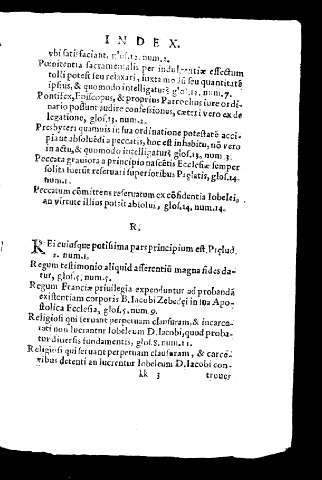 INDEX.
vbi satisfaciant. glos.12. num.2.
Pœnitentia sacramentalis per indulgentiæ effectum
tolli potest seu relaxari, iuxta modũ seu quantitatẽ
ipsius, & quomodo intelligatur? glos.12. num.7.
Pontifex, Episcopus, & proprius Parrochus iure ordi-
nario possunt audire confessiones, cæteri vero ex de
legatione, glos.13. num.2.
Presbyteri quamuis in sua ordinatione potestatẽ acci-
piant absoluẽdi a peccatis, hoc est in habitu, nõ vero
in actu, & quomodo intelligatur? glos.13. num.3.
Peccata grauiora a principio nascẽtis Ecclesiæ semper
solita fuerũt reseruari superioribus Prælatis, glos.14.
num.1.
Peccatum cõmittens reseruatum ex cõfidentia Iobelei,
an virtute illius possit absolui, glos.14. num.14.
R.
REi cuiusque potissima pars principium est. Prælud.
2. num.1.
Regum testimonio aliquid asserentiũ magna fides da-
tur, glos.5. num.5.
Regum Franciæ priuilegia expenduntur ad probandã
existentiam corporis B. Iacobi Zebedei in sua Apo-
stolica Ecclesia, glos.5. num.9.
Religiosi qui seruant perpetuam clausuram, & incarce-
rati non lucrantur Iobeleum D. Iacobi, quod proba-
tur diuersis fundamentis, glos.8. num.11.
Religiosi qui seruant perpetuam clausuram, & carce-
ribus detenti an lucrentur Iobeleum D. Iacobi con-
3 trouer